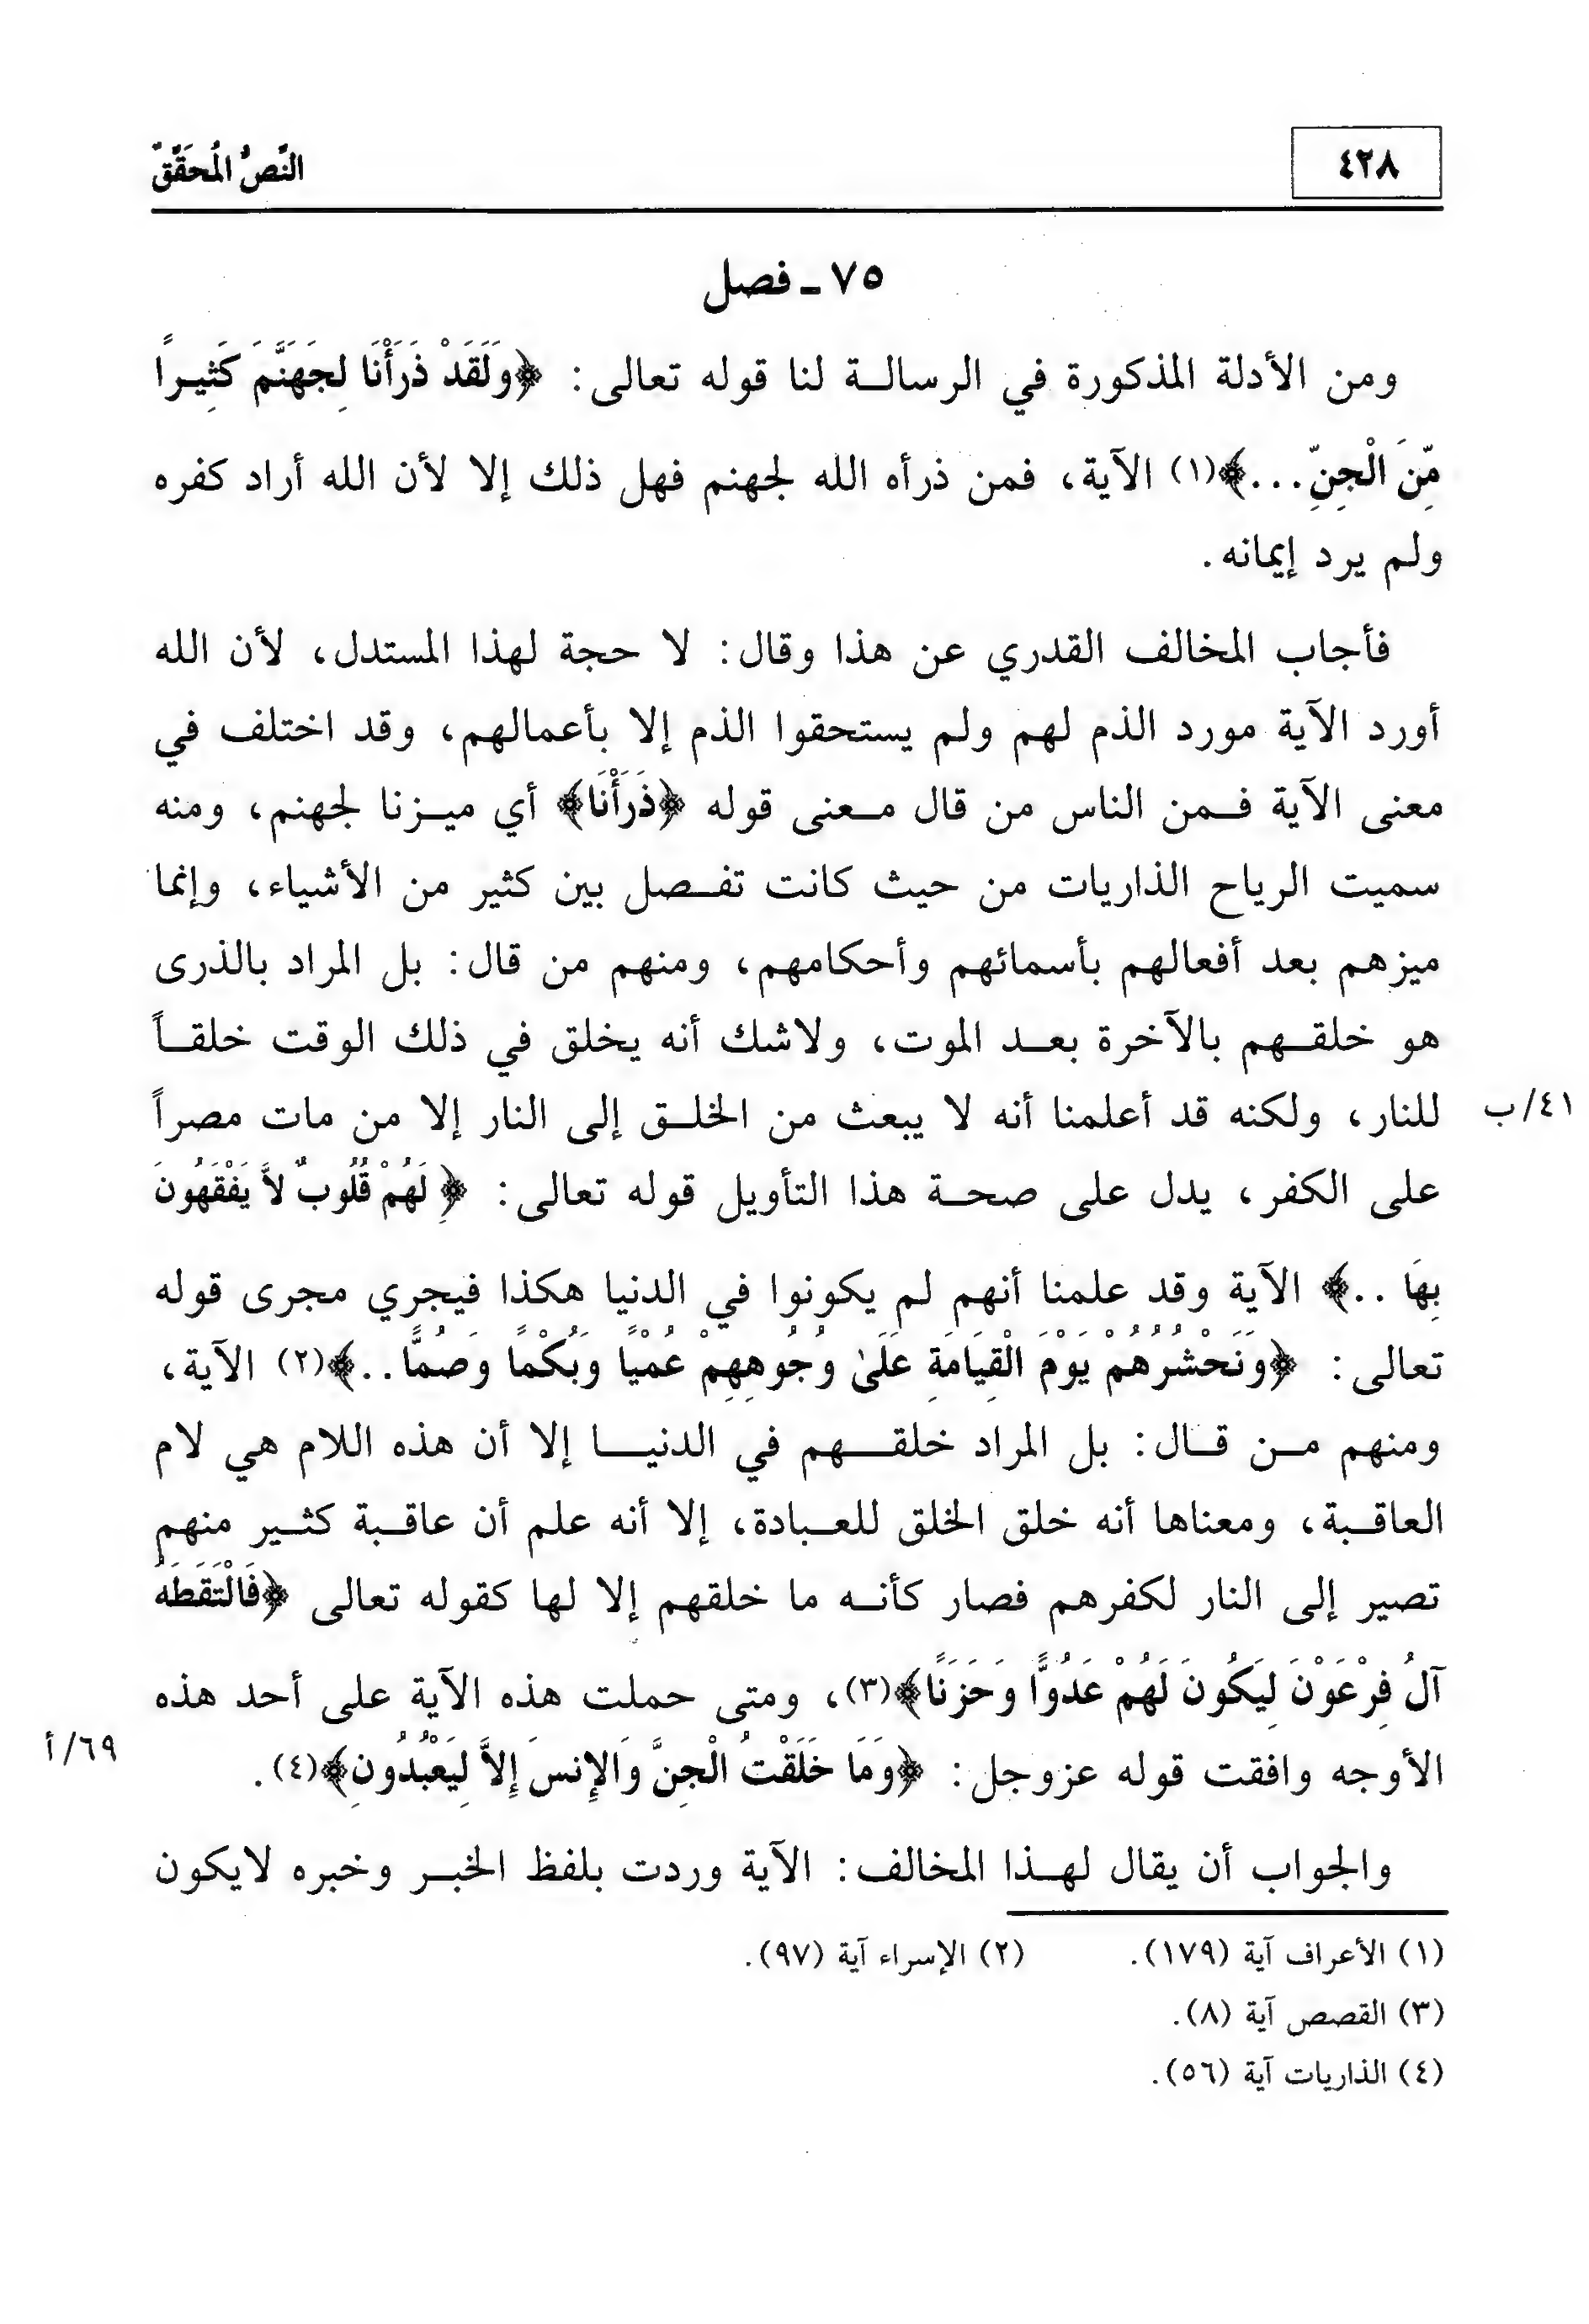 ٤٢٨
النَّصُّ الْمُحَقَّقُ
٧٥ ـ فصل
ومن الأدلة المذكورة في الرسالة لنا قوله تعالى: ﴿وَلَقَدْ ذَرَأْنَا لِجَهَنَّمَ كَثِيراً
مِّنَ الْجِنِّ...﴾(١) الآية، فمن ذرأه الله لجهنم فهل ذلك إلا لأن الله أراد كفره
ولم يرد إيمانه.
فأجاب المخالف القدري عن هذا وقال: لا حجة لهذا المستدل، لأن الله
أورد الآية مورد الذم لهم ولم يستحقوا الذم إلا بأعمالهم، وقد اختلف في
معنى الآية فمن الناس من قال معنى قوله ﴿ذَرَأْنَا﴾ أي ميزنا لجهنم، ومنه
سميت الرياح الذاريات من حيث كانت تفصل بين كثير من الأشياء، وإنما
ميزهم بعد أفعالهم بأسمائهم وأحكامهم، ومنهم من قال: بل المراد بالذرى
هو خلقهم بالآخرة بعد الموت، ولاشك أنه يخلق في ذلك الوقت خلقاً
للنار، ولكنه قد أعلمنا أنه لا يبعث من الخلق إلى النار إلا من مات مصراً
٤١/ب
على الكفر، يدل على صحة هذا التأويل قوله تعالى: ﴿لَهُمْ قُلُوبٌ لاَّ يَفْقَهُونَ
بِهَا ..﴾ الآية وقد علمنا أنهم لم يكونوا في الدنيا هكذا فيجري مجرى قوله
تعالى: ﴿وَنَحْشُرُهُمْ يَوْمَ الْقِيَامَةِ عَلَىٰ وُجُوهِهِمْ عُمْيًا وَبُكْمًا وَصُمًّا..﴾(٢) الآية،
ومنهم من قال: بل المراد خلقهم في الدنيا إلا أن هذه اللام هي لام
العاقبة، ومعناها أنه خلق الخلق للعبادة، إلا أنه علم أن عاقبة كثير منهم
تصير إلى النار لكفرهم فصار كأنه ما خلقهم إلا لها كقوله تعالى ﴿فَالْتَقَطَهُ
آلُ فِرْعَوْنَ لِيَكُونَ لَهُمْ عَدُوًّا وَحَزَنًا﴾(٣)، ومتى حملت هذه الآية على أحد هذه
الأوجه وافقت قوله عزوجل: ﴿وَمَا خَلَقْتُ الْجِنَّ وَالإِنسَ إِلاَّ لِيَعْبُدُونِ﴾(٤).
٦٩/أ
والجواب أن يقال لهذا المخالف: الآية وردت بلفظ الخبر وخبره لايكون
(١) الأعراف آية (١٧٩). (٢) الإسراء آية (٩٧).
(٣) القصص آية (٨).
(٤) الذاريات آية (٥٦).